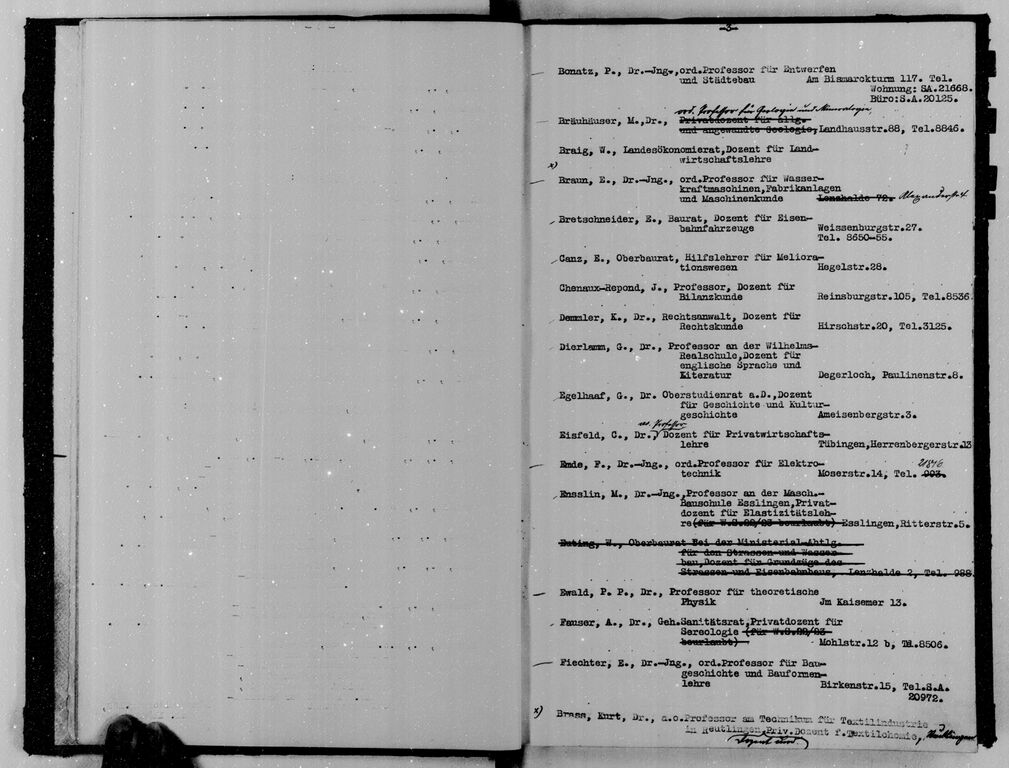 -3-
Bonatz, P., Dr.-Jng., ord.Professor für Entwerfen
und Städtebau Am Bismarckturm 117. Tel.
Wohnung: SA.21668.
Büro:S.A.20125.
ord. Professor für Geologie und Mineralogie,
Bräuhäuser, M.,Dr., Privatdozent für allg.
und angewandte Geologie, Landhausstr.88, Tel.8846.
Braig, W., Landesökonomierat,Dozent für Land-
wirtschaftslehre
x)
Braun, E., Dr.-Jng., ord.Professor für Wasser-
kraftmaschinen,Fabrikanlagen
und Maschinenkunde Lenzhalde 72. Alexanderstr.
Bretschneider, E., Baurat, Dozent für Eisen-
bahnfahrzeuge Weissenburgstr.27.
Tel. 8650-55.
Canz, E., Oberbaurat, Hilfslehrer für Meliora-
tionswesen Hegelstr.28.
Chenaux-Repond, J., Professor, Dozent für
Bilanzkunde Reinsburgstr.105, Tel.8536.
Demmler, K., Dr., Rechtsanwalt, Dozent für
Rechtskunde Hirschstr.20, Tel.3125.
Dierlamm, G., Dr., Professor an der Wilhelms-
Realschule,Dozent für
englische Sprache und
Literatur Degerloch, Paulinenstr.8.
Egelhaaf, G., Dr. Oberstudienrat a.D.,Dozent
für Geschichte und Kultur-
geschichte Ameisenbergstr.3.
Professor
Eisfeld, C., Dr., Dozent für Privatwirtschafts-
lehre Tübingen,Herrenbergerstr.13
Emde, F., Dr.-Jng., ord.Professor für Elektro- 21846
technik Moserstr.14, Tel. 993.
Ensslin, M., Dr.-Jng.,Professor an der Masch.-
Bauschule Esslingen,Privat-
dozent für Elastizitätsleh-
re(für W.S.22/23 beurlaubt) Esslingen,Ritterstr.5.
Euting, W., Oberbaurat bei der Ministerial-Abtlg.
für den Strassen-und Wasser-
bau,Dozent für Grundzüge des
Strassen-und Eisenbahnbaus, Lenzhalde 2, Tel. 988.
Ewald, P. P., Dr., Professor für theoretische
Physik Jm Kaisemer 13.
Fauser, A., Dr., Geh.Sanitätsrat,Privatdozent für
Sereologie (für W.S.22/23
beurlaubt) Mohlstr.12 b, Tel.8506.
Fiechter, E., Dr.-Jng., ord.Professor für Bau-
geschichte und Bauformen-
lehre Birkenstr.15, Tel.S.A.
20972.
x) Brass, Kurt, Dr., a.o.Professor am Technikum für Textilindustrie
in Reutlingen,Priv.Dozent f.Textilchemie, Reutlingen